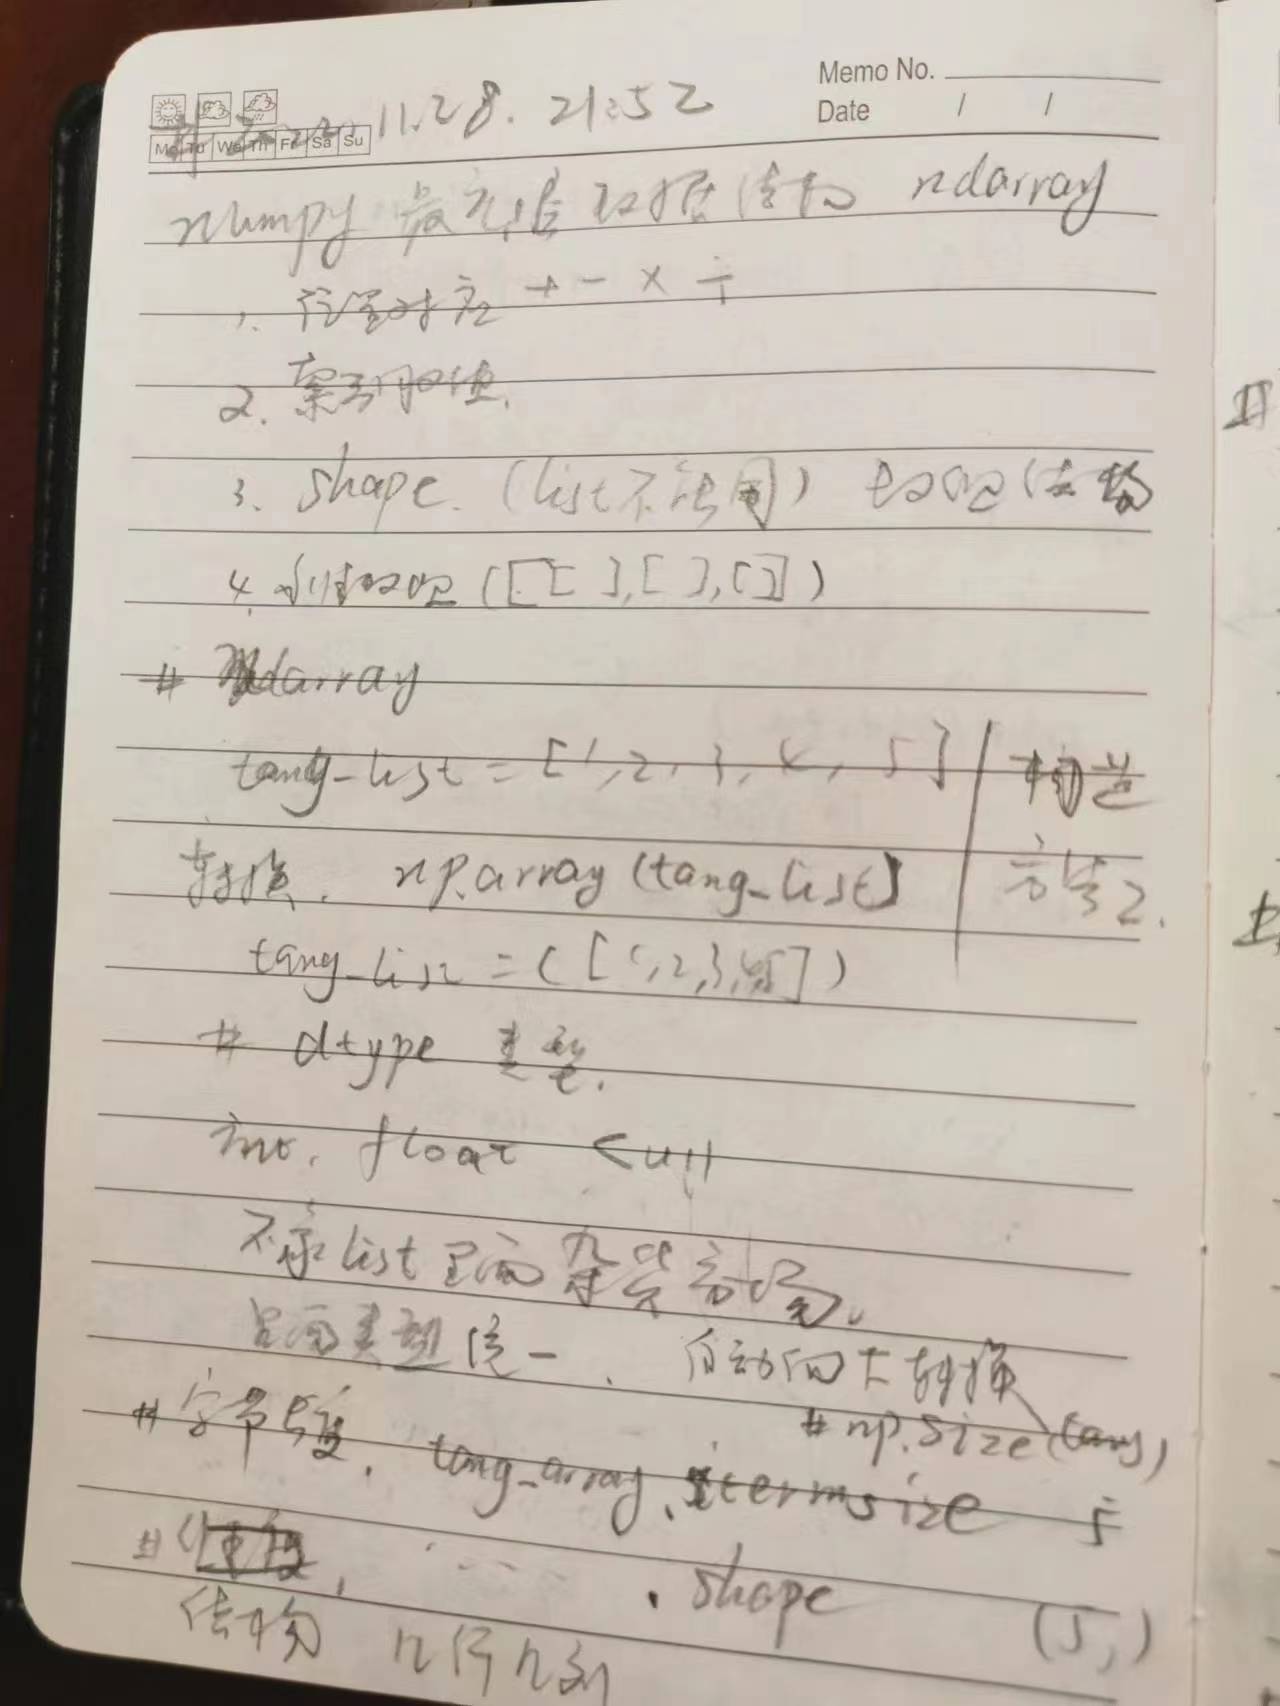 Memo No.
Date / /
Mo Tu We Th Fr Sa Su
11.28. 21:52
numpy 最 数据结构 ndarray
1. 位置对应 + - × ÷
2. 索引取值.
3. shape. (list不能用) 数组结构
4. 数组 ([[ ],[ ],[ ]])
# ndarray
tang_list = [1,2,3,4,5] 构造
转换. np.array (tang_list) 方法2.
tang_list = ([1,2,3,4,5])
# dtype 类型.
int. float <U11
不像list里面杂货市场.
里面类型统一. 自动向上转换
# np.size (tang)
# 字节长度. tang_array.itermsize 5
# . shape (5,)
结构 n行n列